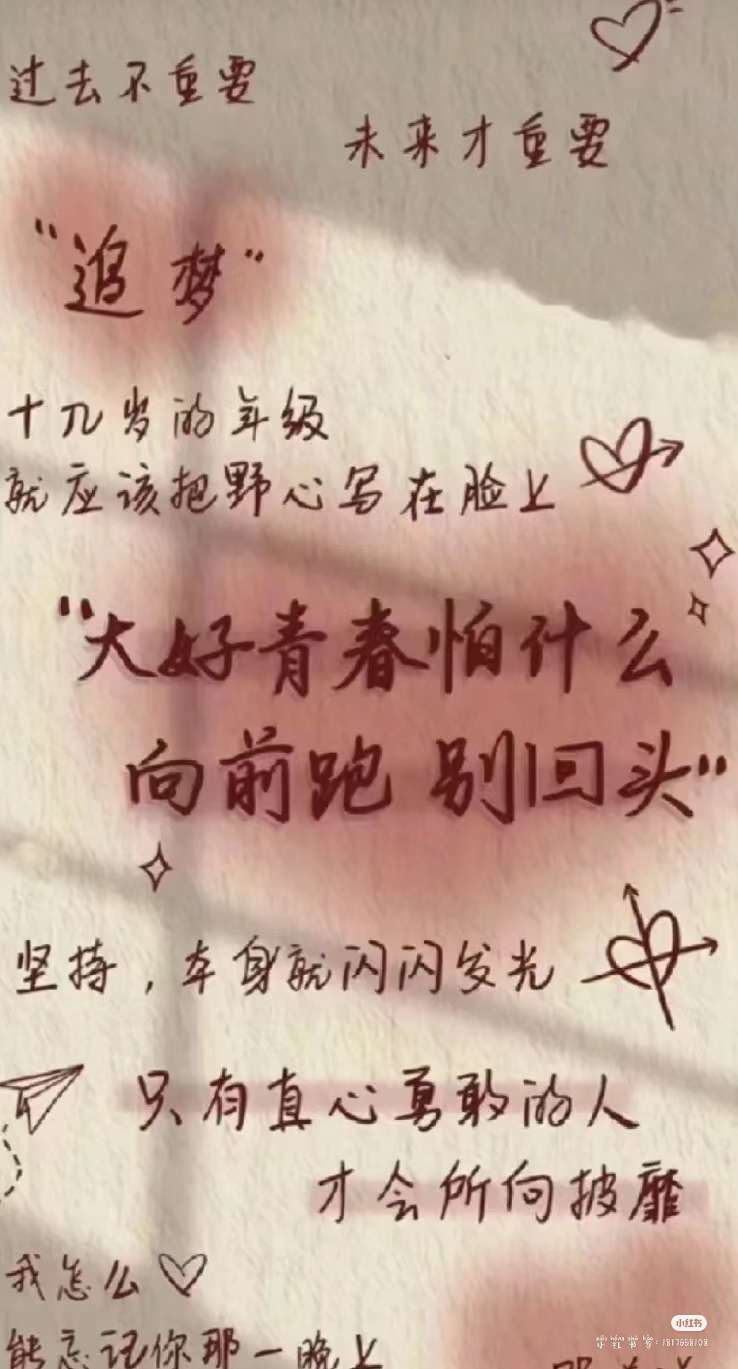 过去不重要
未来才重要
"追梦"
十几岁的年级
就应该把野心写在脸上
"大好青春怕什么
向前跑 别回头"
坚持，本身就闪闪发光
只有真心勇敢的人
才会所向披靡
我怎么
能忘记你那一晚上
小红书